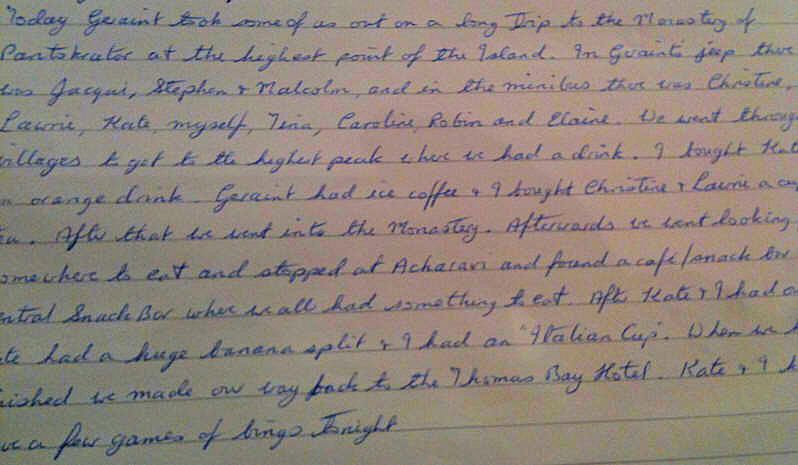 Today Geraint took some of us out on a long Trip to the Monastery of
Pantskrator at the highest point of the Island. In Geraints jeep there
was Jacqui, Stephen & Malcolm, and in the minibus there was Christine,
Lawrie, Kate, myself, Tina, Caroline, Robin and Elaine. We went through
villages to get to the highest peak where we had a drink. I bought Kat
n orange drink. Geraint had ice coffee & I bought Christine & Lawrie a cup
ea. After that we went into the Monastery. Afterwards we went looking
omewhere to eat and stopped at Acharavi and found a cafe/snack bar
entral Snack Bar where we all had something to eat. After Kate & I had
te had a huge banana split & I had an "Italian Cup". When we h
nished we made our way back to the Thomas Bay Hotel. Kate & I h
ve a few games of bingo Tonight